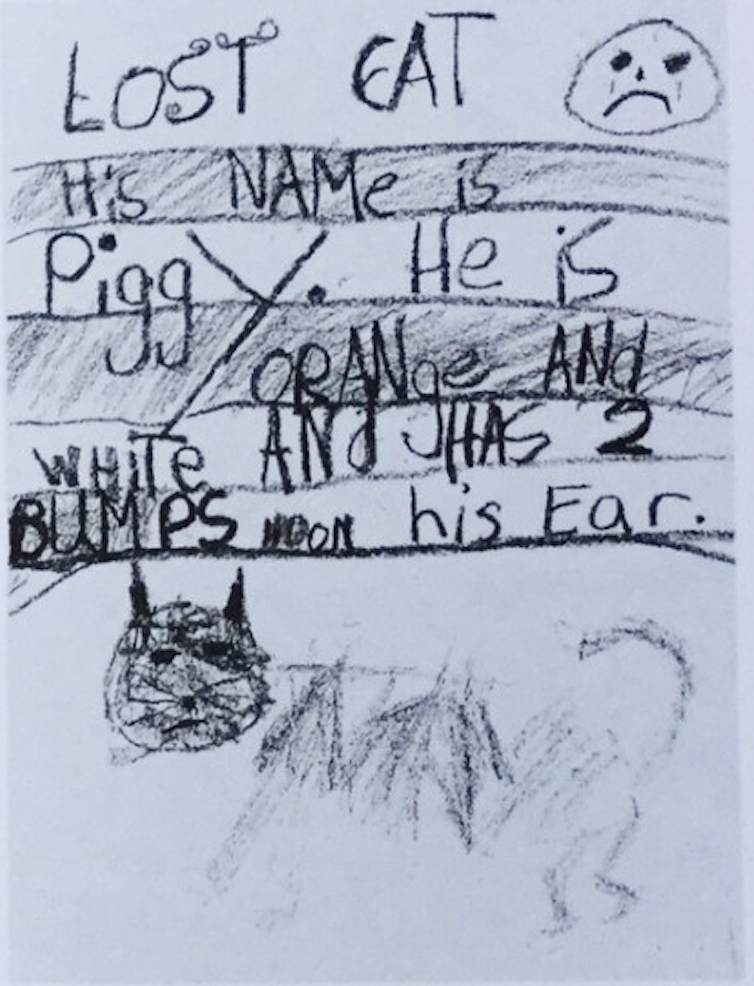 LOST CAT
His NAMe is
Piggy. He is
ORANge ANd
WHiTe ANd HAS 2
BUMPS ON his Ear.